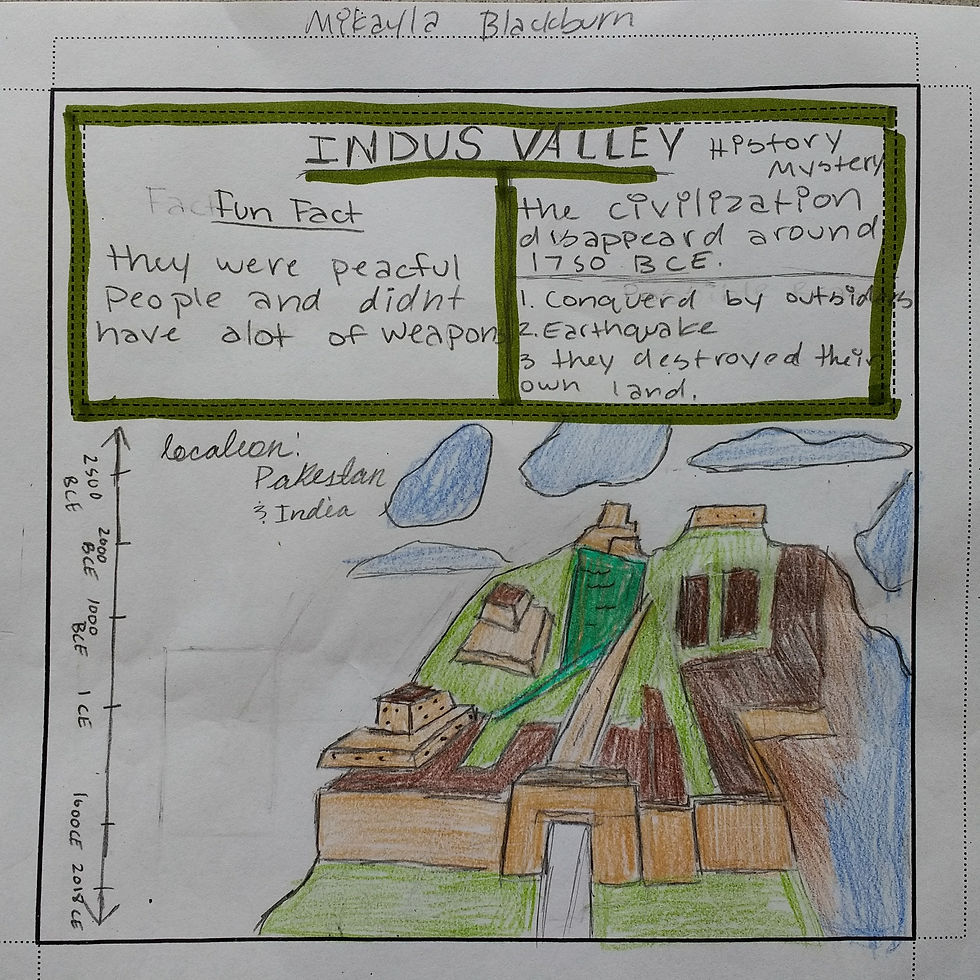 Mikayla Blackburn
INDUS VALLEY
History
Mystery
Fact
Fun Fact
they were peacful
people and didnt
have alot of weapon
the civilization
disappeard around
1750 BCE.
1. Conquerd by outsiders
2. Earthquake
3 they destroyed their
own land.
location:
Pakestan
& India
2500
BCE
2000
BCE
1000
BCE
1 CE
1600CE
2018CE